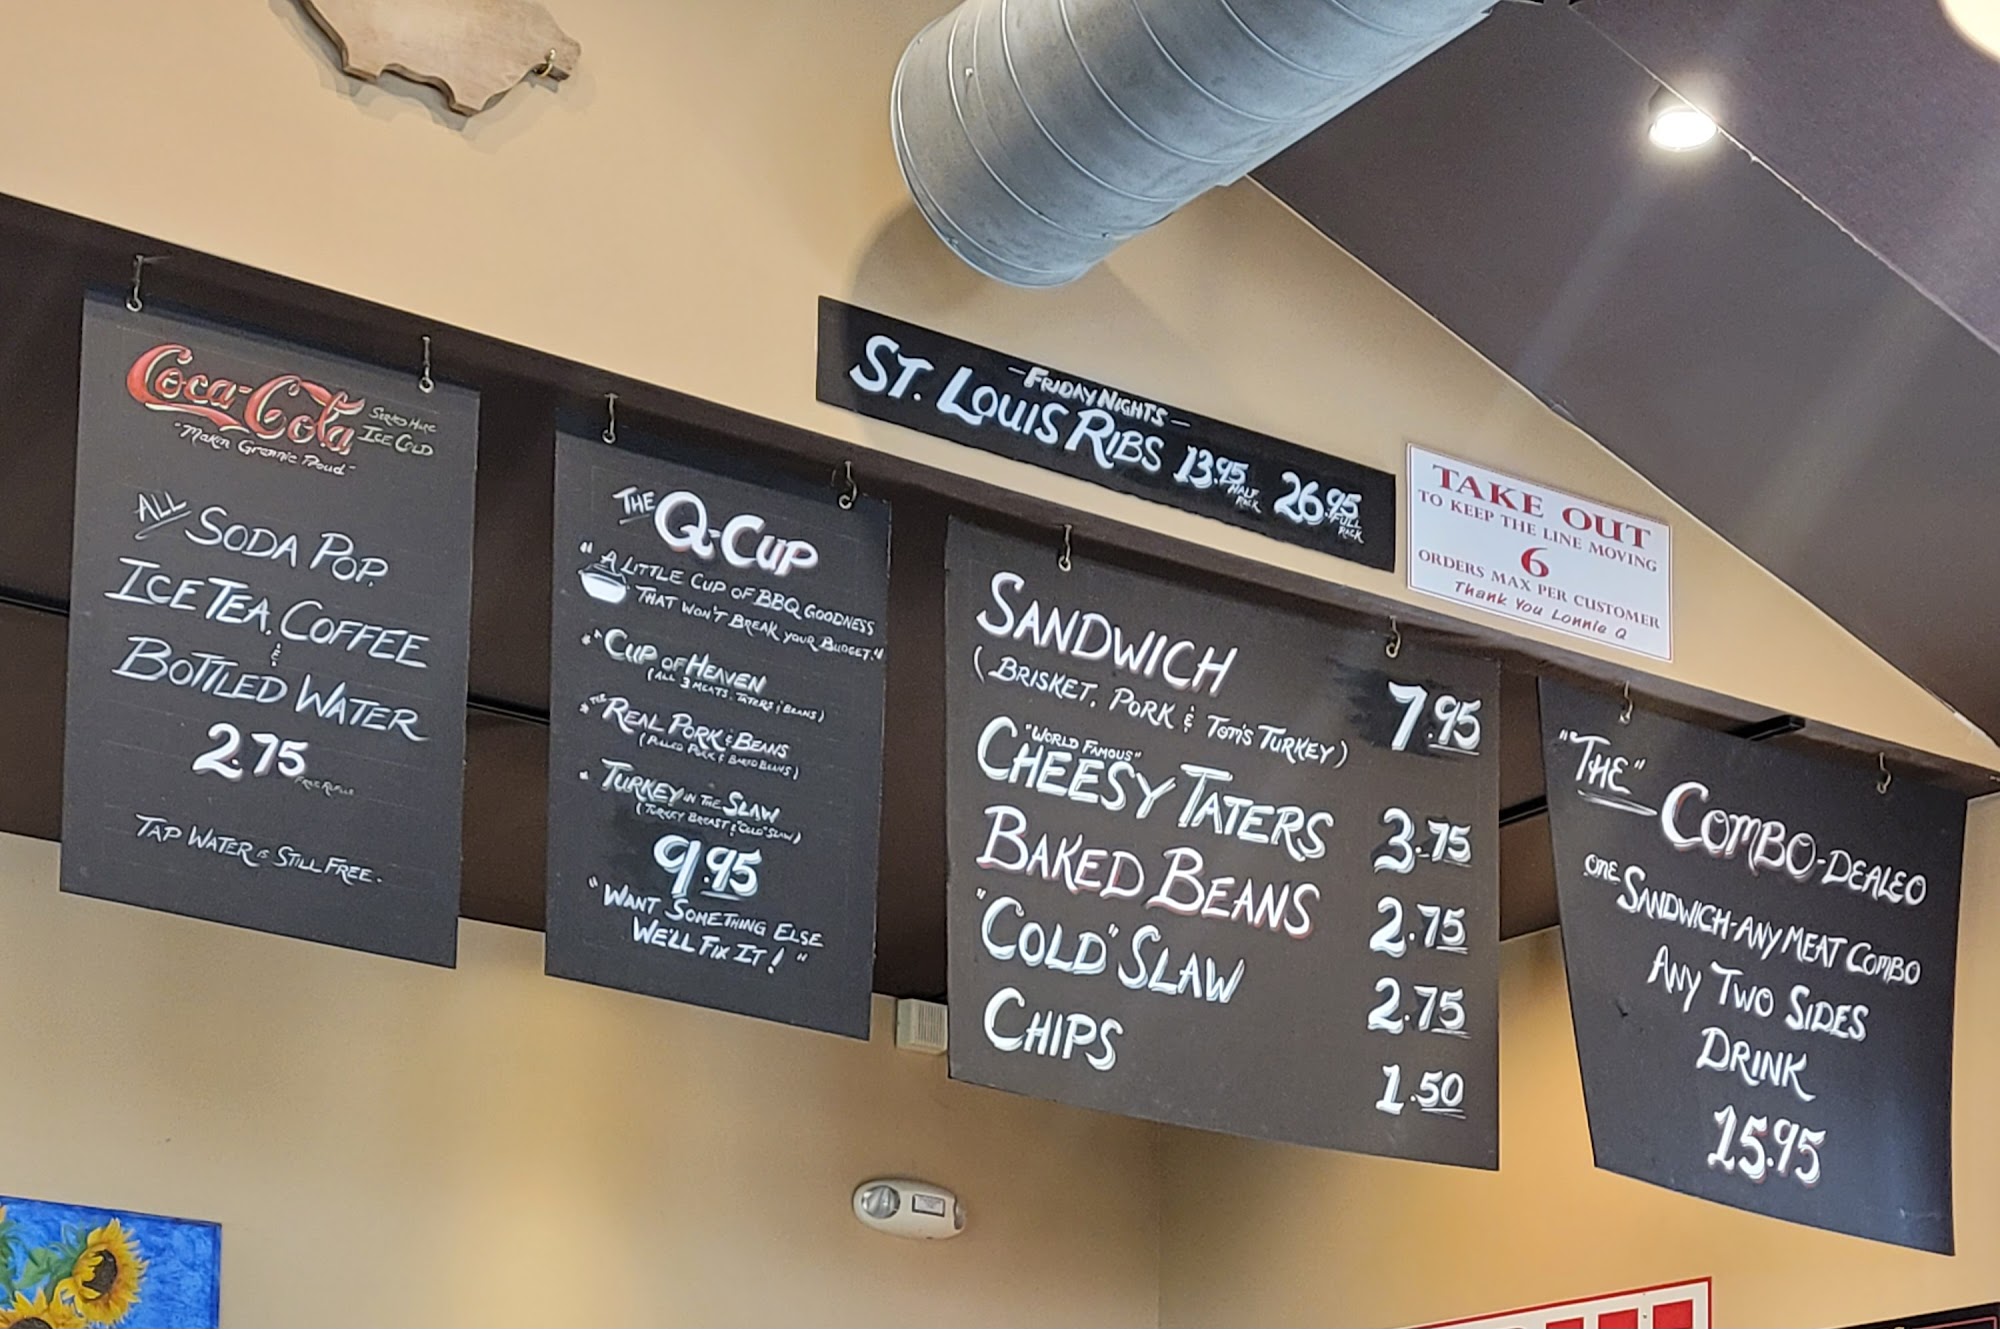 Coca-Cola
SERVED HERE
ICE COLD
"Makin Grannie Proud"
ALL SODA POP,
ICE TEA, COFFEE
&
BOTTLED WATER
2.75
FREE REFILLS
TAP WATER IS STILL FREE.
THE Q-CUP
"A LITTLE CUP OF BBQ GOODNESS
THAT WON'T BREAK YOUR BUDGET."
CUP OF HEAVEN
(ALL 3 MEATS, TATERS & BEANS)
THE REAL PORK & BEANS
(PULLED PORK & BAKED BEANS)
TURKEY IN THE SLAW
(TURKEY BREAST & "COLD" SLAW)
9.95
"WANT SOMETHING ELSE
WE'LL FIX IT!"
-FRIDAY NIGHTS-
ST. LOUIS RIBS 13.95 HALF RACK 26.95 FULL RACK
TAKE OUT
TO KEEP THE LINE MOVING
6
ORDERS MAX PER CUSTOMER
Thank You Lonnie Q
SANDWICH 7.95
(BRISKET, PORK & TOM'S TURKEY)
"WORLD FAMOUS"
CHEESY TATERS 3.75
BAKED BEANS 2.75
"COLD" SLAW 2.75
CHIPS 1.50
"THE" COMBO-DEALEO
ONE SANDWICH-ANY MEAT COMBO
ANY TWO SIDES
DRINK
15.95